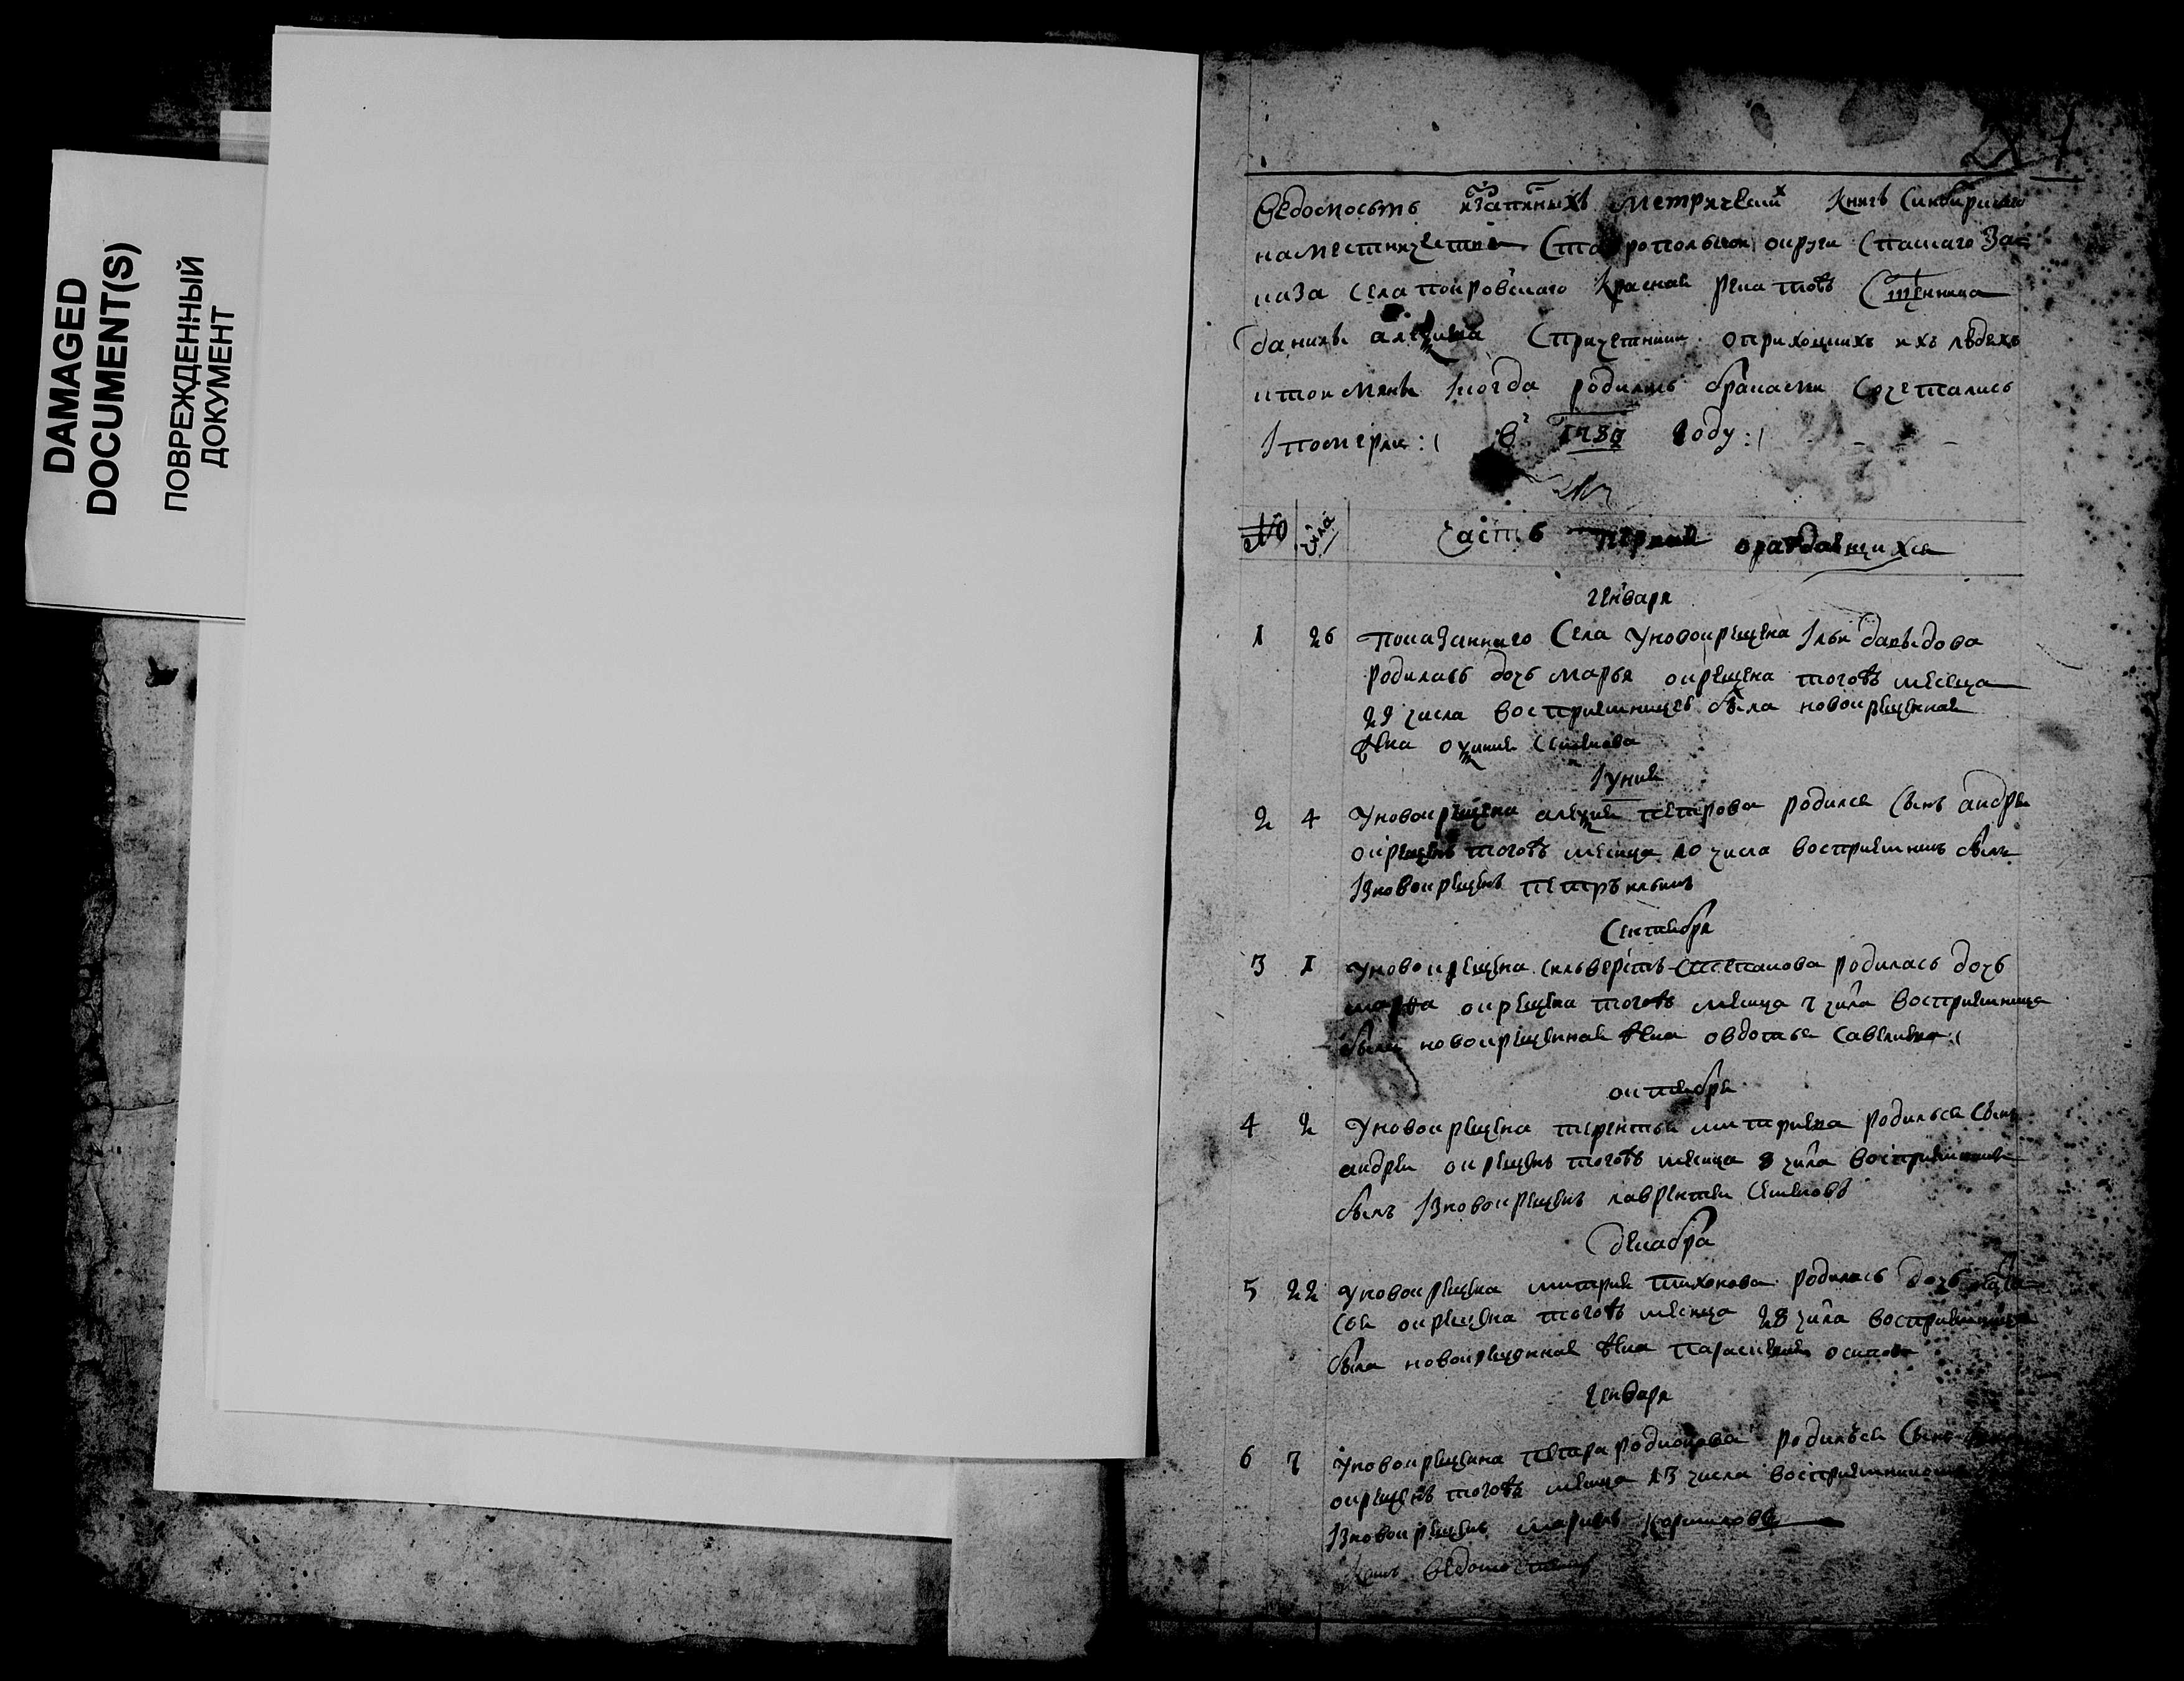 DAMAGED
DOCUMENT(S)
ПОВРЕЖДЕННЫЙ
ДОКУМЕНТ
Ведомость метрически книгъ Синбирскаго
наместничества Ставропольской округи Спаскаго За
каза села покровскаго Красная река тожъ Сщенника
данилы алеѯиева Спричетники оприходцкихъ ихъ людехъ
ктои имяны когда родились браками Сочетались
Iпомерли :( въ году :/
№ Числа часть первая ораждающихся
Генваря
1 26 показаннаго Села Уновокрещена Iльи давыдова
родилась дочь марья окрещена тогожъ месеца
29 числа восприемницеѣ была новокрещеная
жена Семенова
Iуния
2 4 Уновокрещена алеѯия петрова родился Сынъ андрей
окрещенъ тогожъ месеца 10 числа восприемникъ былъ
Iзновокрещенъ петръ
Сентября
3 1 Уновокрещена Степанова родилась дочь
окрещена тогожъ месеца 7 числа восприемница
была новокрещенная жена овдотья Савельева :(
октября
4 2 Уновокрещена терентья митриева родилься Сынъ
андрей окрещенъ тогожъ месеца 8 числа восприемникъ
былъ Iзновокрещенъ лаврентей Семеновъ
Декабря
5 22 Уновокрещена митрия тихонова родилась дочь
окрещена тогожъ месеца 28 числа восприемница
была новокрещенная жена параскевия осипова
Генваря
6 7 Уновокрещена петра родионова родилься Сынъ
окрещенъ тогожъ месеца 13 числа восприемникомъ
Iзновокрещенъ